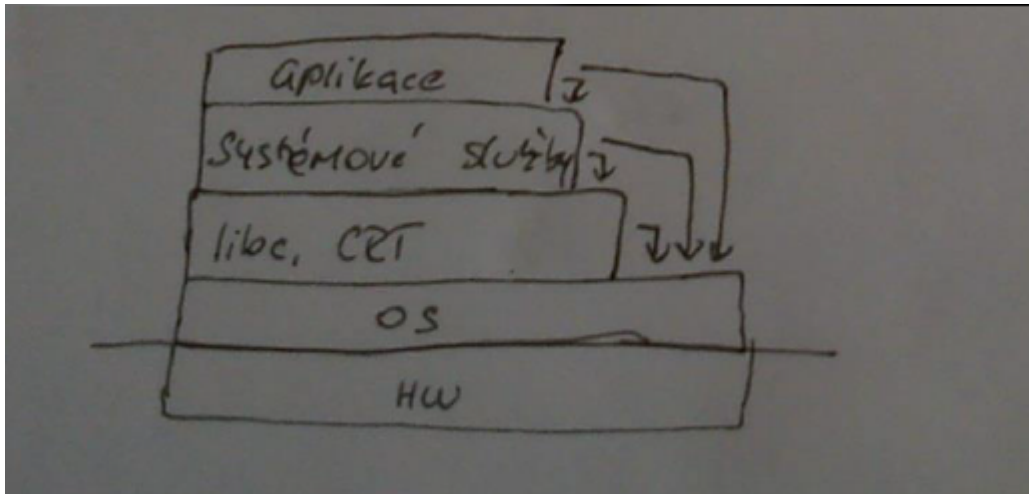 aplikace
Systémové služby
libc, CRT
OS
HW